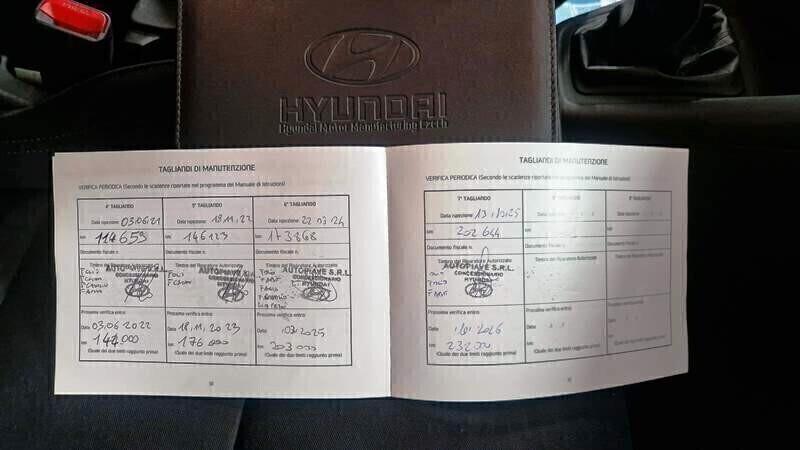 HYUNDAI
Hyundai Motor Manufacturing Czech
TAGLIANDI DI MANUTENZIONE
VERIFICA PERIODICA (Secondo le scadenze riportate nel programma del Manuale di Istruzioni)
4° TAGLIANDO 5° TAGLIANDO 6° TAGLIANDO
Data ispezione: 03.06.21 Data ispezione: 18.11.22 Data ispezione: 22 03 24
km 114653 km 146123 km 173868
Documento fiscale n. Documento fiscale n. Documento fiscale n.
Timbro del Riparatore Autorizzato Timbro del Riparatore Autorizzato Timbro del Riparatore Autorizzato
AUTOPIAVE S.R.L.
CONCESSIONARIO
HYUNDAI
AUTOPIAVE S.R.L.
CONCESSIONARIO
HYUNDAI
AUTOPIAVE S.R.L.
CONCESSIONARIO
HYUNDAI
Prossima verifica entro: Prossima verifica entro: Prossima verifica entro:
Data 03,06 2022 Data 18,11,2023 Data 2025
km 147.000 km 176 000 km 203.000
(Quale dei due limiti raggiunto prima) (Quale dei due limiti raggiunto prima) (Quale dei due limiti raggiunto prima)
TAGLIANDI DI MANUTENZIONE
VERIFICA PERIODICA (Secondo le scadenze riportate nel programma del Manuale di Istruzioni)
7° TAGLIANDO 8° TAGLIANDO 9° TAGLIANDO
Data ispezione: Data ispezione: Data ispezione:
km 202 644 km km
Documento fiscale n. Documento fiscale n. Documento fiscale n.
Timbro del Riparatore Autorizzato Timbro del Riparatore Autorizzato Timbro del Riparatore Autorizzato
AUTOPIAVE S.R.L.
CONCESSIONARIO
HYUNDAI
Prossima verifica entro: Prossima verifica entro: Prossima verifica entro:
Data 2026 Data Data
km 232 000 km km
(Quale dei due limiti raggiunto prima) (Quale dei due limiti raggiunto prima) (Quale dei due limiti raggiunto prima)